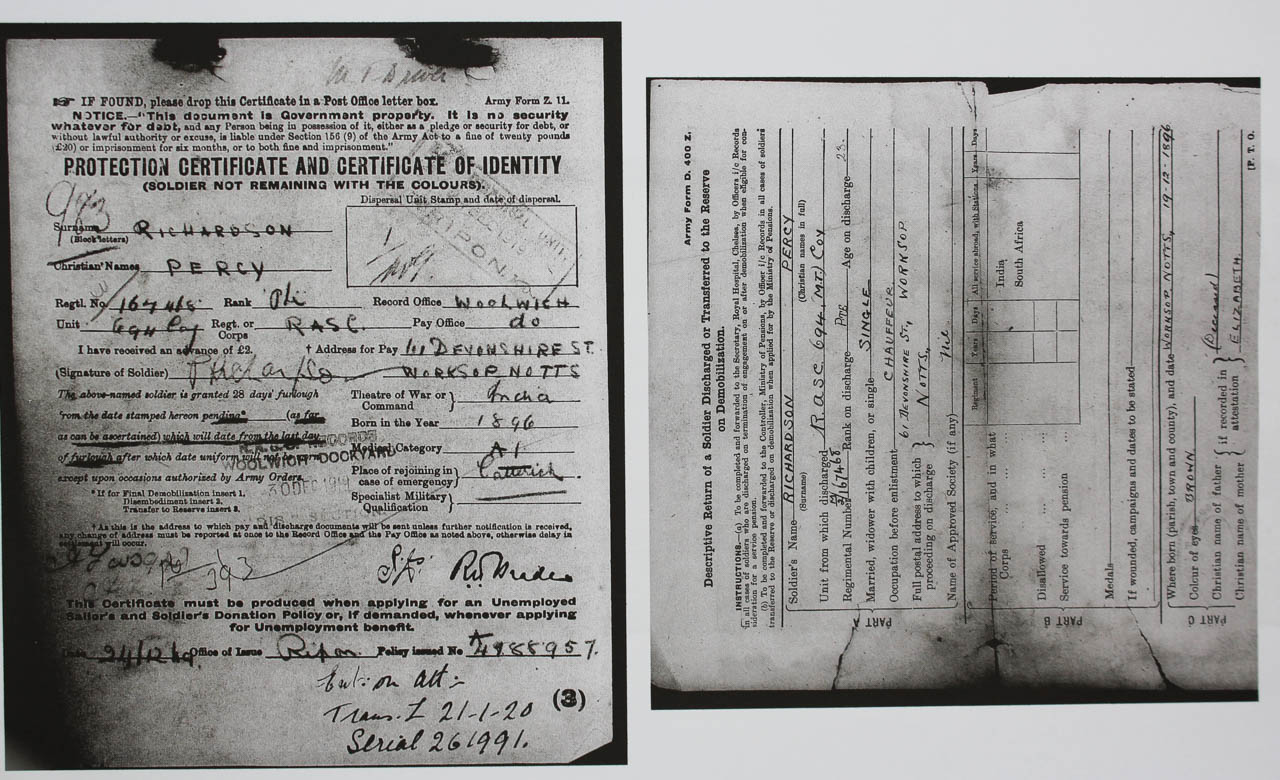 ☞ IF FOUND, please drop this Certificate in a Post Office letter box. Army Form Z. 11.
NOTICE.—"This document is Government property. It is no security
whatever for debt, and any Person being in possession of it, either as a pledge or security for debt, or
without lawful authority or excuse, is liable under Section 156 (9) of the Army Act to a fine of twenty pounds
(£20) or imprisonment for six months, or to both fine and imprisonment."
PROTECTION CERTIFICATE AND CERTIFICATE OF IDENTITY
(SOLDIER NOT REMAINING WITH THE COLOURS).
Dispersal Unit Stamp and date of dispersal.
RIPON
Surname RICHARDSON
(Block letters)
Christian Names PERCY
Regtl. No. 167468 Rank Pte Record Office WOOLWICH
Unit 694 Coy Regt. or Corps RASC. Pay Office do
I have received an advance of £2. † Address for Pay 61 DEVONSHIRE ST.
(Signature of Soldier) P Richardson WORKSOP NOTTS
The above-named soldier is granted 28 days' furlough
from the date stamped hereon pending* (as far
as can be ascertained) which will date from the last day
of furlough after which date uniform will not be worn
except upon occasions authorized by Army Orders.
* If for Final Demobilization insert 1.
Disembodiment insert 2.
Transfer to Reserve insert 3.
Theatre of War or Command India
Born in the Year 1896
Medical Category A1
Place of rejoining in case of emergency Catterick
Specialist Military Qualification
RECORDS
WOOLWICH DOCKYARD
30 DEC 1919
† As this is the address to which pay and discharge documents will be sent unless further notification is received,
any change of address must be reported at once to the Record Office and the Pay Office as noted above, otherwise delay in
settlement will occur.
This Certificate must be produced when applying for an Unemployed
Sailor's and Soldier's Donation Policy or, if demanded, whenever applying
for Unemployment benefit.
Date 24/12/19 Office of Issue Ripon Policy issued No 4988957.
Trans. Z 21-1-20
Serial 261991.
(3)
Army Form D. 400 Z.
Descriptive Return of a Soldier Discharged or Transferred to the Reserve
on Demobilization.
INSTRUCTIONS.—(a) To be completed and forwarded to the Secretary, Royal Hospital, Chelsea, by Officers i/c Records
in all cases of soldiers who are discharged on termination of engagement on or after demobilization when eligible for con-
sideration for a service pension.
(b) To be completed and forwarded to the Controller, Ministry of Pensions, by Officer i/c Records in all cases of soldiers
transferred to the Reserve or discharged on demobilization when applied for by the Ministry of Pensions.
PART A
Soldier's Name RICHARDSON PERCY
(Surname) (Christian names in full)
Unit from which discharged RASC 694 (MT) Coy
Regimental Number 167468 Rank on discharge Pte Age on discharge 23.
Married, widower with children, or single SINGLE
Occupation before enlistment CHAUFFEUR
Full postal address to which proceeding on discharge 61 DEVONSHIRE ST., WORKSOP
NOTTS.
Name of Approved Society (if any) Nil
PART B
Period of service, and in what Corps ... ...
Regiment Years Days All service abroad, with Stations. Years Days
India
South Africa
Disallowed ... ...
Service towards pension
Medals
If wounded, campaigns and dates to be stated
PART C
Where born (parish, town and county), and date WORKSOP NOTTS, 19-12-1896
Colour of eyes BROWN
Christian name of father
Christian name of mother ELIZABETH
if recorded in attestation
[P. T. O.